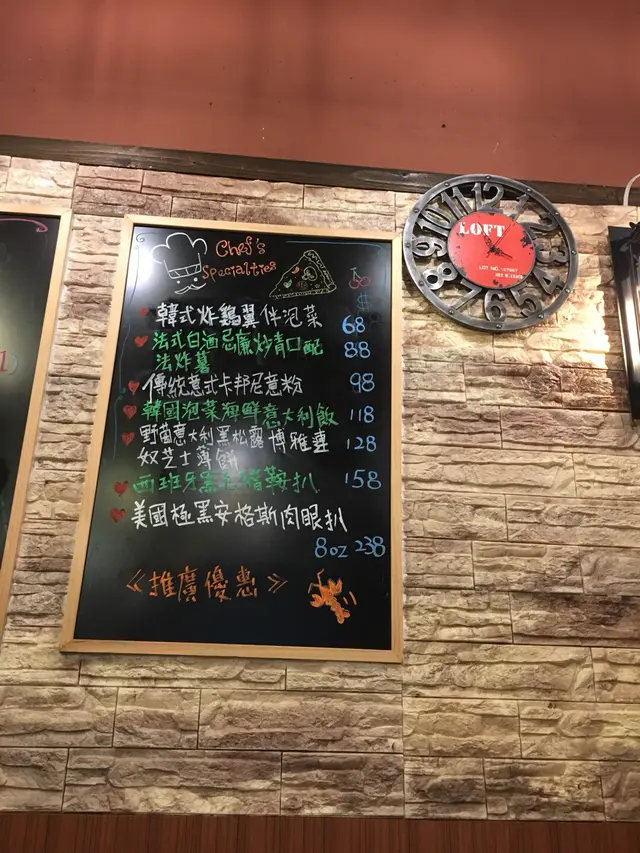 Chef's
Specialties
$
韓式炸鷄翼伴泡菜 68
法式白酒忌廉炒青口配 88
法炸薯
傳統意式卡邦尼意粉 98
韓國泡菜海鮮意大利飯 118
野菌意大利黑松露博雅 128
奴芝士薄餅
西班牙黑毛豬鞍扒 158
美國極黑安格斯肉眼扒
8oz 238
《推廣優惠》
12
1
2
3
4
5
6
7
8
9
10
11
LOFT